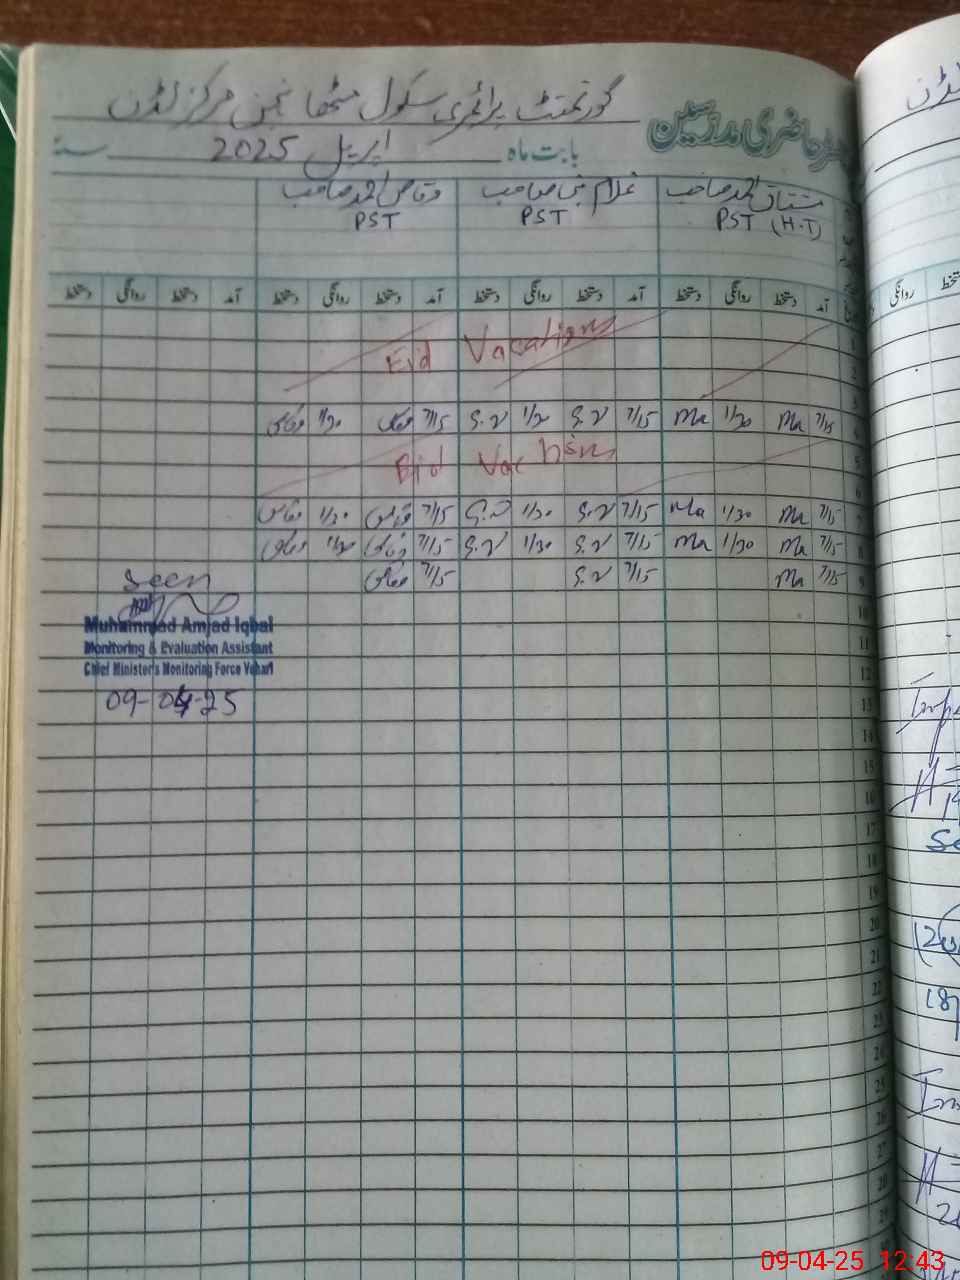 گورنمنٹ پرائمری سکول مٹھا مرکز لڈن
حاضری مدرسین
بابت ماہ اپریل 2025 سنہ
مشتاق احمد صاحب غلام نبی صاحب وقاص احمد صاحب
PST (H.T) PST PST
آمد دستخط روانگی دستخط آمد دستخط روانگی دستخط آمد دستخط روانگی دستخط آمد دستخط روانگی دستخط
1
Eid Vacations
2
3
4 7/15 Ma 1/30 Ma 7/15 1/30 7/15 وقاص 1/30 وقاص
5 Eid Vacation
6
7 7/15 Ma 1/30 Ma 7/15 1/30 7/15 وقاص 1/30 وقاص
8 7/15 Ma 1/30 Ma 7/15 1/30 7/15 وقاص 1/30 وقاص
9 7/15 Ma 7/15 7/15 وقاص
Seen
Muhammad Amjad Iqbal
Monitoring & Evaluation Assistant
Chief Minister's Monitoring Force Vehari
09-04-25
10
11
12
13
14
15
16
17
18
19
20
21
22
23
24
25
26
27
28
29
روانگی
09-04-25 12:43